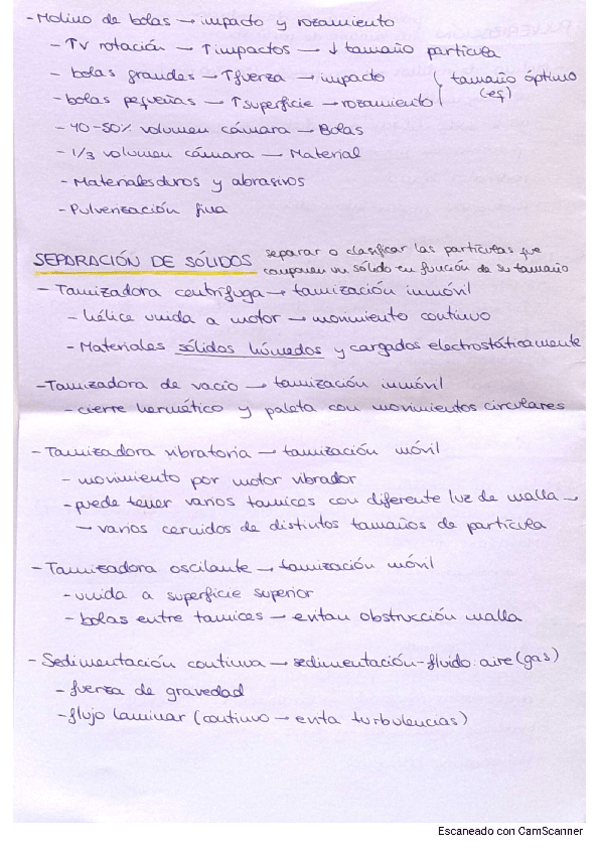 - Molino de bolas → impacto y rozamiento
- ↑v rotación → ↑impactos → ↓ tamaño partícula
- bolas grandes → ↑fuerza → impacto
- bolas pequeñas → ↑superficie → rozamiento
} tamaño óptimo (eq)
- 40-50% volumen cámara → Bolas
- 1/3 volumen cámara → Material
- Materiales duros y abrasivos
- Pulverización fina
SEPARACIÓN DE SÓLIDOS separar o clasificar las partículas que
componen un sólido en función de su tamaño
- Tamizadora centrífuga → tamización inmóvil
- hélice unida a motor → movimiento continuo
- Materiales sólidos húmedos y cargados electrostáticamente
- Tamizadora de vacío → tamización inmóvil
- cierre hermético y paleta con movimientos circulares
- Tamizadora vibratoria → tamización móvil
- movimiento por motor vibrador
- puede tener varios tamices con diferente luz de malla →
→ varios cernidos de distintos tamaños de partícula
- Tamizadora oscilante → tamización móvil
- unida a superficie superior
- bolas entre tamices → evitan obstrucción malla
- Sedimentación continua → sedimentación-fluido: aire (gas)
- fuerza de gravedad
- flujo laminar (continuo → evita turbulencias)
Escaneado con CamScanner